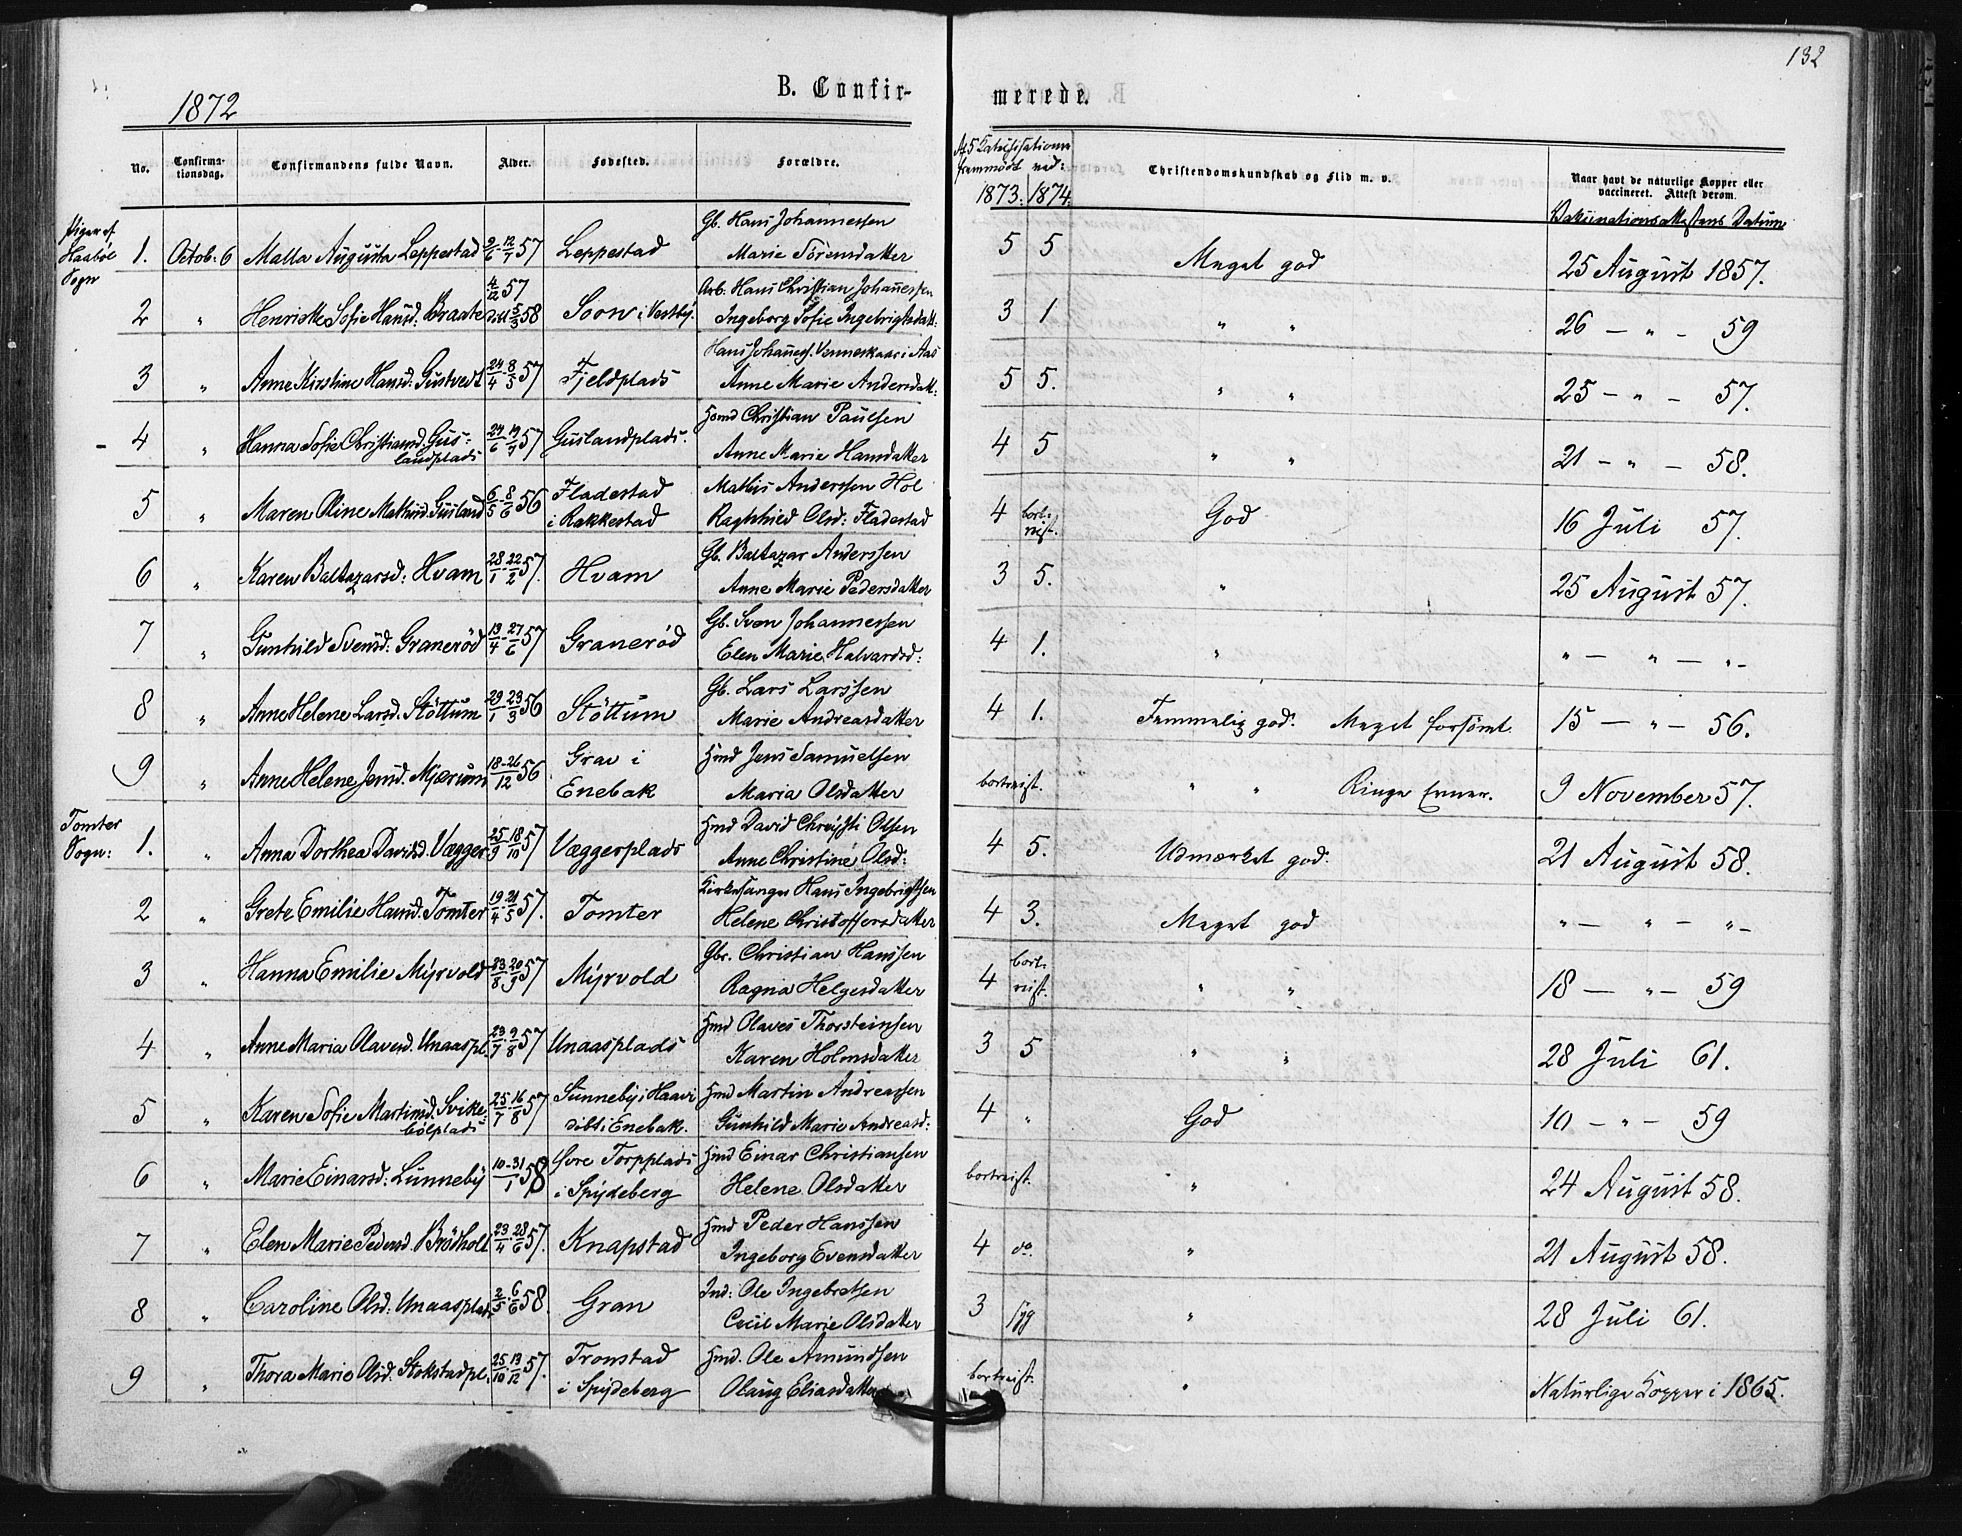 132
1872
B. Confir-
merede.
No. Confirma-tionsdag. Confirmandens fulde Navn. Alder. Fødested. Forældre. Af 5 Katekisationer fremmødt ved: 1873. 1874. Christendomskundskab og Flid m. v. Naar havt de naturlige Kopper eller vaccineret. Attest derom.
Vakcinationsattestens Datum
Piger af Haabøl Sogn
1. Octob. 6 Malla Augusta Leppestad 9/6-12/7 57 Leppestad Gb. Hans Johannessen 5 5 Meget god 25 August 1857.
Marie Sørensdatter
2 " Henriette Sofie Hansd: Braate 4/12 57 døbt 5/3 58 Soon i Vestby. Arb. Hans Christian Johannessen 3 1 " " 26 — " — 59
Ingeborg Sofie Ingebrigtsdatt:
3 " Anne Kirstine Hansd: Gustvedt 24/4-8/5 57 Fjeldplads Hans Johannes. Venneskaar i Aas 5 5. " " 25 — " — 57.
Anne Marie Andersdatt:
4 " Hanna Sofie Christiansd. Gus-landplads 24/6 19/7 57 Guslandplads. Hsmd Christian Paulsen 4 5 " " 21 — " — 58.
Anne Marie Hansdatter
5 " Maren Oline Mathisd. Gusland 6/5-8/6 56 Fladestad i Rakkestad Mathis Anderssen Hol 4 bort-reist. God 16 Juli 57.
Raghhied Olsd: Fladestad
6 " Karen Baltazarsd: Hvam 28/1-22/2 57. Hvam Gb. Baltazar Anderssen 3 5. " 25 August 57.
Anne Marie Pedersdatter
7 " Gunhild Svensd: Granerød 13/4-27/6 57 Granerød Gb. Sven Johannessen 4 1. " " — " — " —
Elen Marie Halvardsd:
8 " Anne Helene Larsd. Støttum 29/1-23/3 56 Støttum Gb. Lars Larssen 4 1. Temmelig god. Meget forsømt. 15 — " — 56.
Marie Andreasdatter
9 " Anne Helene Jensd. Mjærum 18-26/12 56 Grav i Enebak Hmd Jens Samuelsen bortreist. " " Ringe Evner. 9 November 57.
Maria Olsdatter
Tomter Sogn:
1. " Anna Dorthea Davidsd. Vægger 25/9-18/10 57. Væggerplads Hmd David Christi Olsen 4 5. Udmærket god. 21 August 58.
Anne Christine Olsd:
2 " Grete Emilie Hansd. Tomter 19/4-21/5 57. Tomter Kirkesanger Hans Ingebrigtsen 4 3. Meget god " — " — " —
Helene Christoffersdatter
3 " Hanna Emilie Myrvold 23/8.20/9 57 Myrvold Gbr. Christian Hanssen 4 bort-reist. " " 18 — " — 59
Ragna Helgesdatter
4 " Anne Maria Olavesd. Unaaspl. 23/7.9/8 57 Unaasplads Hmd Olaves Thorsteinsen 3 5 " " 28 Juli 61.
Karen Holmsdatter
5 " Karen Sofie Martinsd. Svike-bølplads 25/7.16/8 57 Sunneby i Haavi døbt i Enebak. Hmd Martin Andreassen 4 " God 10 — " — 59
Gunhild Marie Andreasd:
6 " Marie Einarsd: Lunneby 10-31/1 58 Øvre Torpplads i Spydeberg Hmd Einar Christiansen bortreist. " 24 August 58.
Helene Olsdatter
7 " Elen Marie Pedersd. Brødholt 23/4.28/6 57. Knapstad Hmd Peder Hanssen 4 do. " 21 August 58.
Ingeborg Evensdatter
8 " Caroline Olsd: Unaasplads 2/5.6/6 58. Gran Ind: Ole Ingebretsen 3 syg " 28 Juli 61.
Cecil Marie Olsdatter
9 " Thora Marie Olsd. Stokstadpl. 25/10.13/12 57. Tronstad i Spydeberg Hmd. Ole Amundsen bortreist. " Naturlige Kopper i 1865.
Olaug Eliasdatter